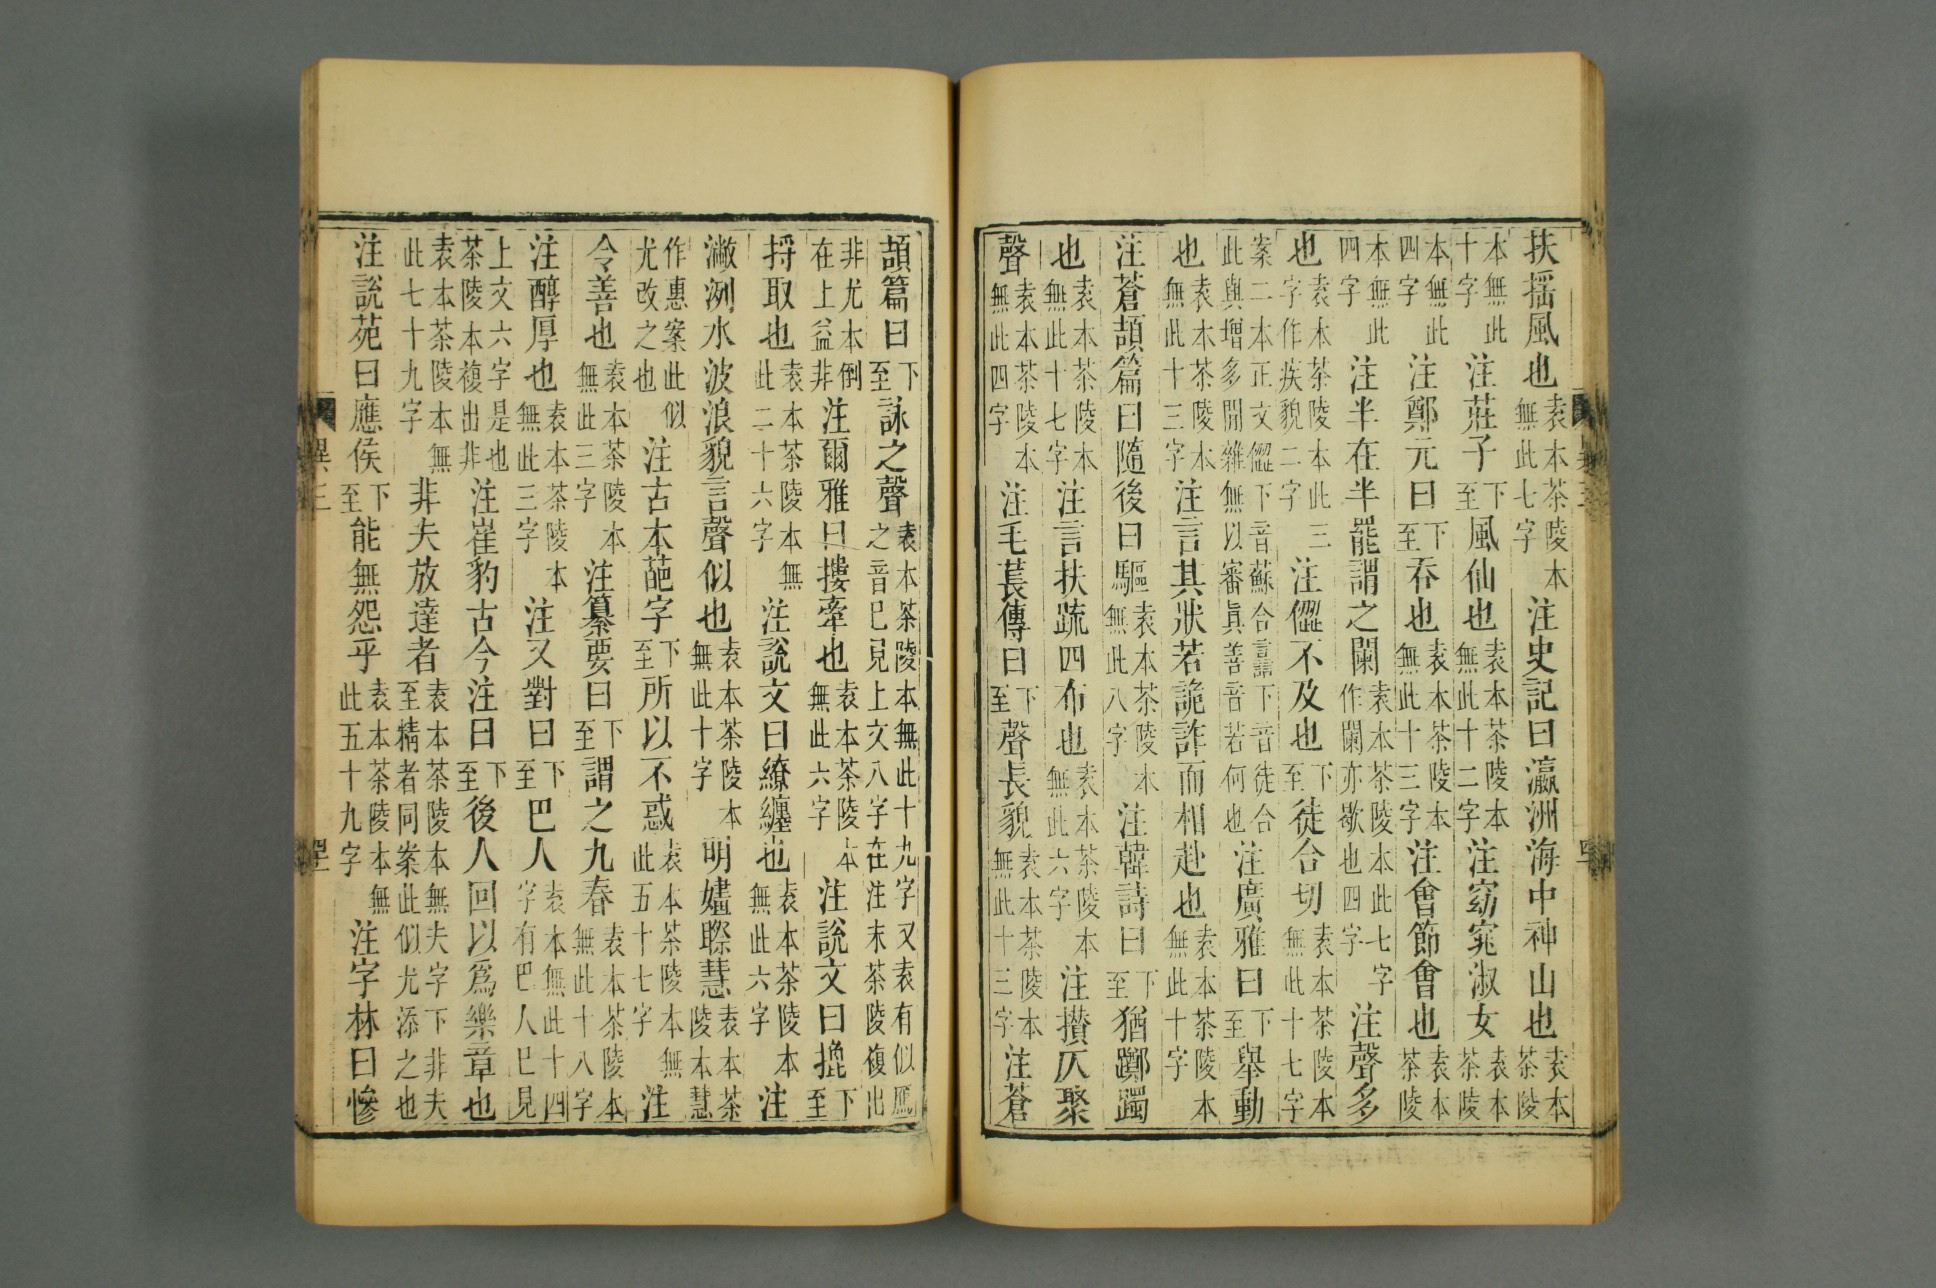 扶揺風也袁本茶陵本無此七字注史記曰瀛洲海中神山也袁本茶陵
本無此十字注莊子下至風仙也袁本茶陵本無此十二字注窈窕淑女袁本茶陵
本無此四字注鄭元曰下至吞也袁本茶陵本無此十三字注會節會也袁本茶陵
本無此四字注半在半罷謂之闌袁本茶陵本此七字作闌亦歇也四字注聲多
也袁本茶陵本此三字作疾貌二字注儠不及也下至徒合切袁本茶陵本無此十七字
案二本正文儠下音蘇合譶下音徒合此與增多閒雜無以審眞善音若何也注廣雅曰下至舉動
也袁本茶陵本無此十三字注言其狀若詭詐而相赴也袁本茶陵本無此十字
注蒼頡篇曰隨後曰驅袁本茶陵本無此八字注韓詩曰下至猶躑躅
也袁本茶陵本無此十七字注言扶疏四布也袁本茶陵本無此六字注攅仄聚
聲袁本茶陵本無此四字注毛萇傳曰下至聲長貌袁本茶陵本無此十三字注蒼
頡篇曰下至詠之聲袁本茶陵本無此十九字又袁有似鴈之音巳見上文八字在注末茶陵複出
非尤本倒在上益非注爾雅曰摟牽也袁本茶陵本無此六字注說文曰擸下至
捋取也袁本茶陵本無此二十六字注說文曰繚纏也袁本茶陵本無此六字注
潎洌水波浪貌言聲似也袁本茶陵本無此十字明㜯𥌒慧袁本茶陵本慧
作惠案此似尤改之也注古本葩字下至所以不惑袁本茶陵本無此五十七字注
令善也袁本茶陵本無此三字注纂要曰下至謂之九春袁本茶陵本無此十八字
注醇厚也袁本茶陵本無此三字注又對曰下至巴人袁本無此十四字有巴人巳見
上文六字是也茶陵本複出非注崔豹古今注曰下至後人回以爲樂章也
袁本茶陵本無此七十九字非夫放達者袁本茶陵本無夫字下非夫至精者同案此似尤添之也
注說苑曰應侯下至能無怨乎袁本茶陵本無此五十九字注字林曰慘